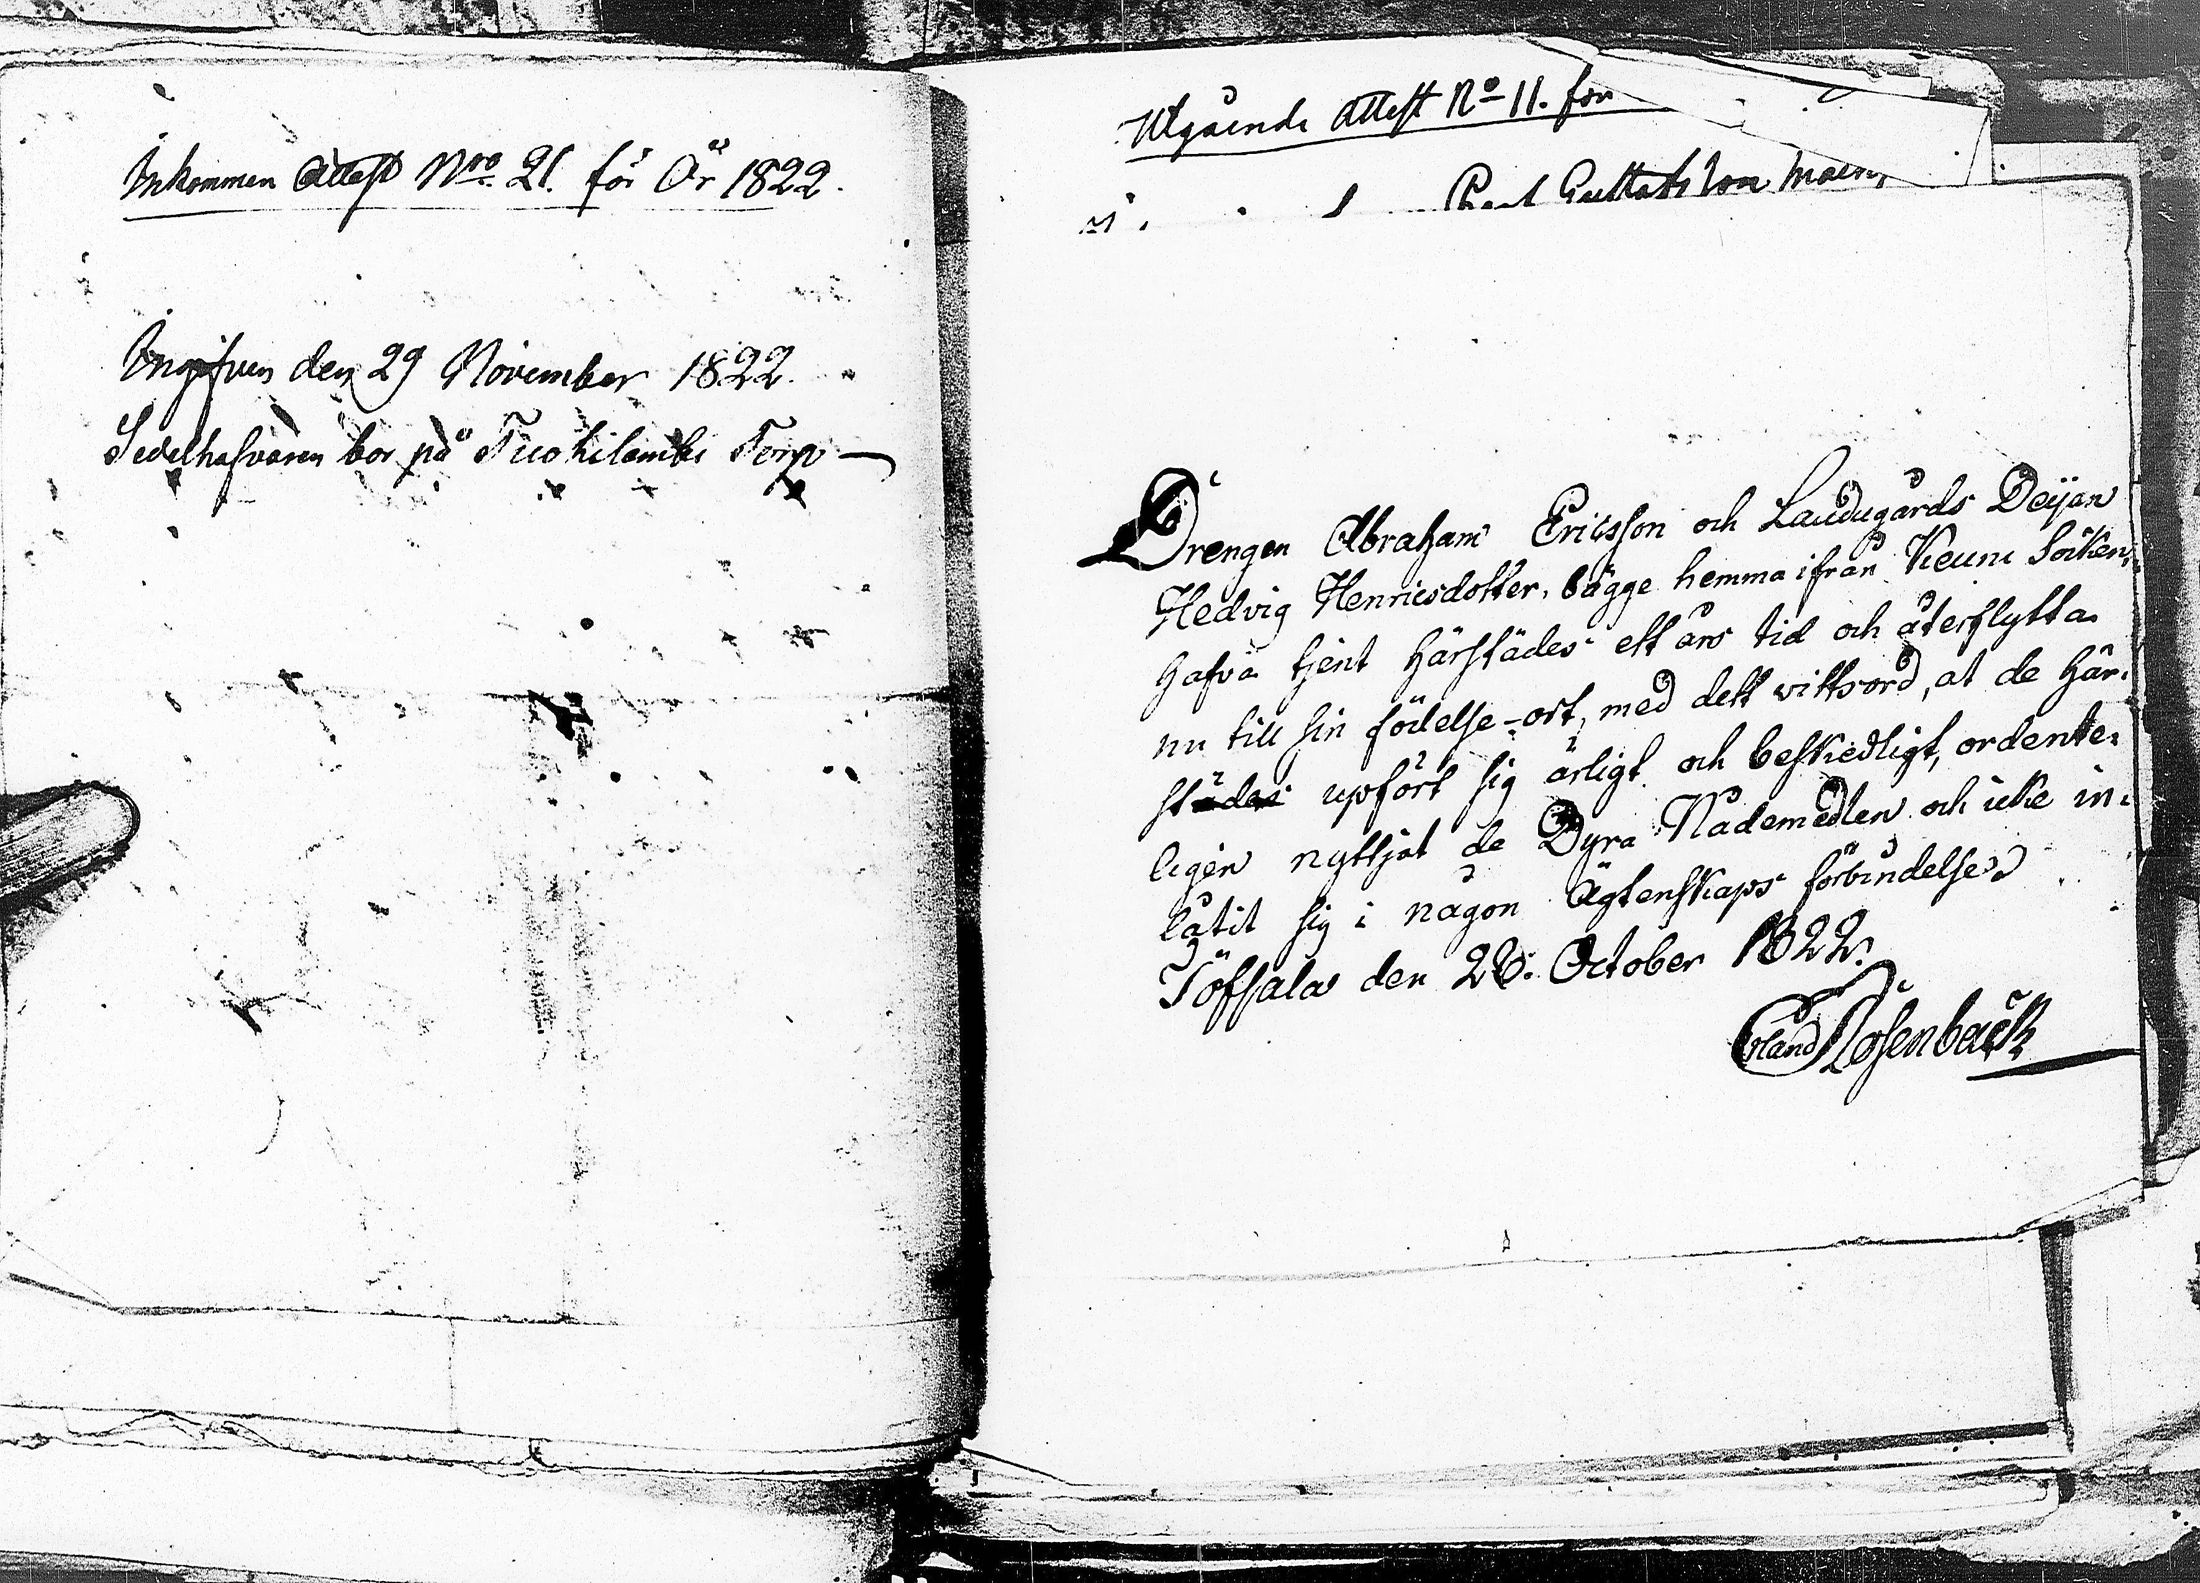 Inkommen Attest Nro. 21. för År 1822.
Ingifven den 29 November 1822.
Sedelhafvaren bor på Tuohilambi Torp
Utgående Attest No 11. för
Gustafsson
Drengen Abraham Ericsson och Laudugårds Deijan
Hedvig Henricsdotter, bägge hemma ifrån Keumo Soiken,
hafva tjent härstädes ett års tid och återflytta
nu till sin födelse-ort, med dett vittsord, at de här-
städes upfört sig ärligt och beskiedligt, ordente-
ligen nyttjat de Dyra Nademedlen och icke in-
låtit sig i någon Ägtenskaps förbindelse.
Töfsala den 28. October 1822.
Erland Rosenback